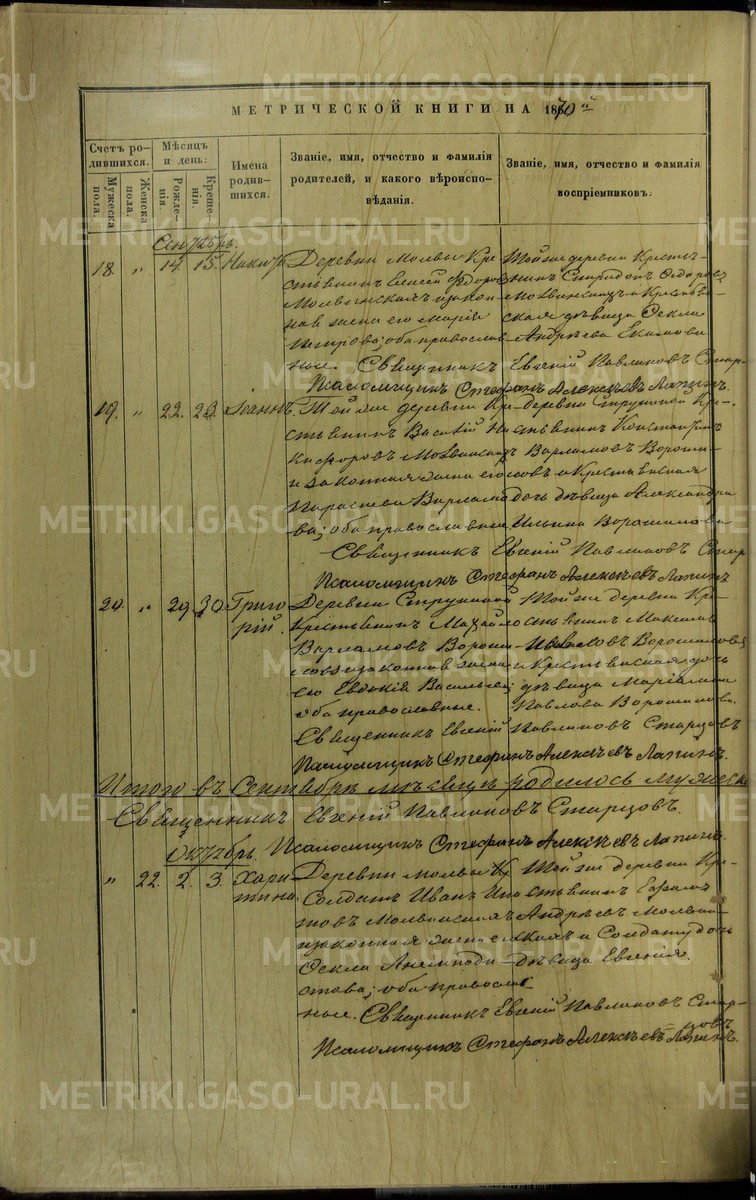 МЕТРИЧЕСКОЙ КНИГИ НА 1870й
Счетъ родившихся.
Мужеска пола.
Женска пола.
Мѣсяцъ и день:
Рожденія.
Крещенія.
Имена родившихся.
Званіе, имя, отчество и фамилія родителей, и какого вѣроисповѣданія.
Званіе, имя, отчество и фамилія воспріемниковъ.
Сентябрь.
18. " 14. 15. Никита
Деревни Молвы Кре
стьянинъ Елисей Ѳедоровъ
Молвинскихъ и закон
ная жена его Марія
Петрова; оба православ
ные.
Той же деревни Кресть-
янинъ Спиридонъ Ѳедоровъ
Молвинскихъ и Крестьян
ская дѣвица Ѳекла
Андрѣева
Священникъ Евгеній Павлиновъ Стар-
Псаломщикъ Стефанъ Алексѣевъ Лапинъ.
19. " 22. 23. Іоаннъ.
Той же деревни Кре
стьянинъ Василій
Молвинскихъ
и законная жена его
Параскева Варлаамо
ва; оба православные
деревни Струниной Кре-
стьянинъ Константинъ
Варламовъ Вороши-
ловъ и Крестьянская
дочь дѣвица Александра
Ильина Ворошилова
Священникъ Евгеній Павлиновъ Стар
Псаломщикъ Стефанъ Алексѣевъ Лапинъ
20. " 29. 30. Григо
рій.
Деревни Струниной
Крестьянинъ Михайло
Варламовъ Вороши-
ловъ и законная жена
его Евдокія Васильева;
оба православные.
Той же деревни Кре-
стьянинъ Максимъ
Ивановъ Ворошиловъ
и Крестьянская дочь
дѣвица
Павлова Ворошилова.
Священникъ Евгеній Павлиновъ Старцовъ
Псаломщикъ Стефанъ Алексѣевъ Лапинъ.
Итого въ Сентябрѣ мѣсяцѣ родилось мужеска
Священникъ Евгеній Павлиновъ Старцовъ.
Псаломщикъ Стефанъ Алексѣевъ Лапинъ.
Октябрь.
" 22. 2. 3. Хари
тина
Деревни Молвы
Солдатъ Иванъ Ипа
товъ Молвинскихъ
и законная жена его
Ѳекла Анемподи-
стова; оба православ
ные.
Той же деревни Кре-
стьянинъ
Андрѣевъ Молвин
скихъ и Солдат. дочь
дѣвица Евгенія.
Священникъ Евгеній Павлиновъ Стар-
цовъ
Псаломщикъ Стефанъ Алексѣевъ Лапинъ.
METRIKI.GASO-URAL.RU